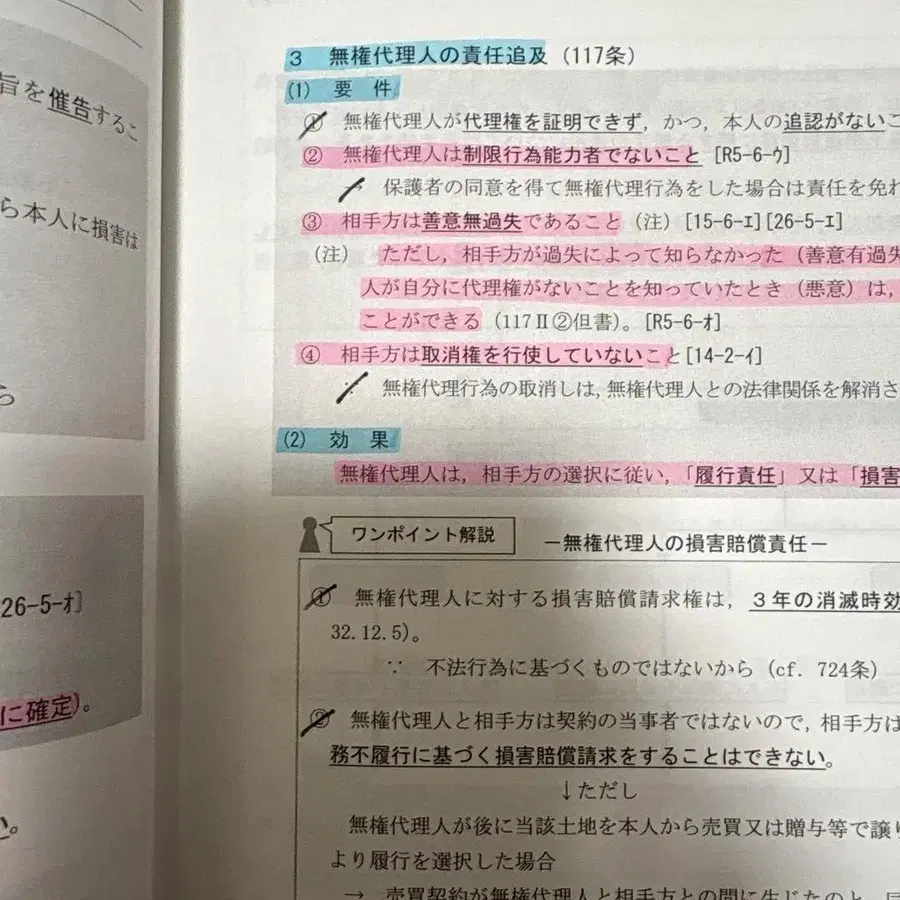 旨を催告するこ
ら本人に損害は
ら
26-5-ｵ]
に確定)。
い。
3 無権代理人の責任追及（117条）
(1) 要 件
① 無権代理人が代理権を証明できず，かつ，本人の追認がないこ
② 無権代理人は制限行為能力者でないこと [R5-6-ｳ]
保護者の同意を得て無権代理行為をした場合は責任を免れ
③ 相手方は善意無過失であること（注）[15-6-ｴ][26-5-ｴ]
（注） ただし，相手方が過失によって知らなかった（善意有過失
人が自分に代理権がないことを知っていたとき（悪意）は，
ことができる（117Ⅱ②但書）。[R5-6-ｵ]
④ 相手方は取消権を行使していないこと[14-2-ｲ]
∵ 無権代理行為の取消しは，無権代理人との法律関係を解消さ
(2) 効 果
無権代理人は，相手方の選択に従い，「履行責任」又は「損害
ワンポイント解説 －無権代理人の損害賠償責任－
① 無権代理人に対する損害賠償請求権は，３年の消滅時効
32.12.5)。
∵ 不法行為に基づくものではないから（cf. 724条）
② 無権代理人と相手方は契約の当事者ではないので，相手方は
務不履行に基づく損害賠償請求をすることはできない。
↓ただし
無権代理人が後に当該土地を本人から売買又は贈与等で譲り
より履行を選択した場合
→ 売買契約が無権代理人と相手方との間に生じたのと